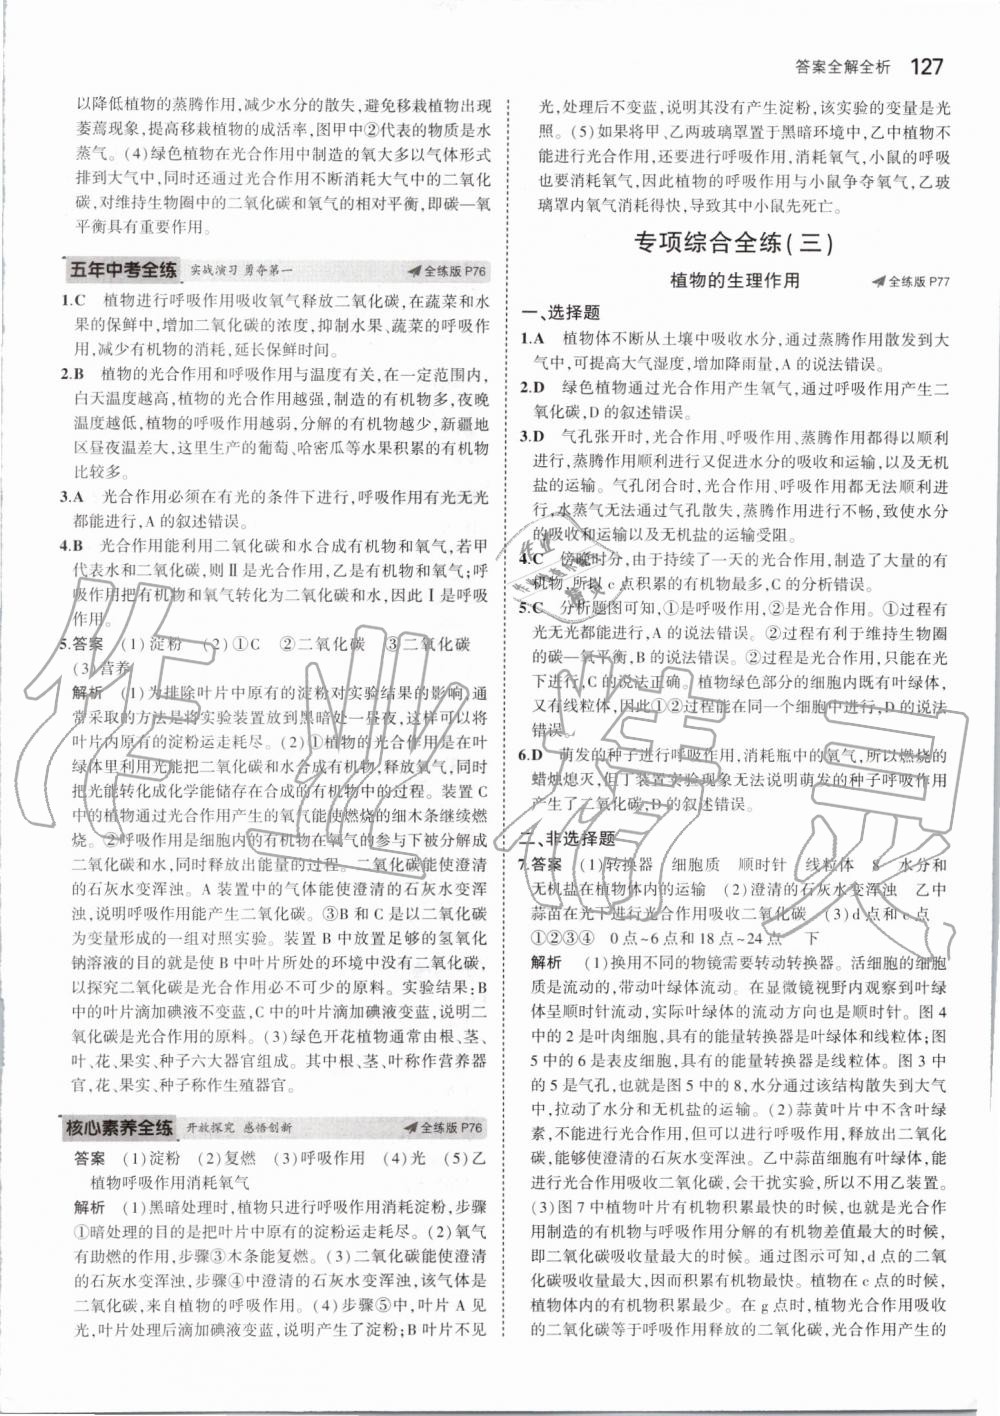 答案全解全析 127
以降低植物的蒸腾作用,减少水分的散失,避免移栽植物出现
萎蔫现象,提高移栽植物的成活率,图甲中②代表的物质是水
蒸气。(4)绿色植物在光合作用中制造的氧大多以气体形式
排到大气中,同时还通过光合作用不断消耗大气中的二氧化
碳,对维持生物圈中的二氧化碳和氧气的相对平衡,即碳—氧
平衡具有重要作用。
五年中考全练 实战演习 勇夺第一 全练版 P76
1.C 植物进行呼吸作用吸收氧气释放二氧化碳,在蔬菜和水
果的保鲜中,增加二氧化碳的浓度,抑制水果、蔬菜的呼吸作
用,减少有机物的消耗,延长保鲜时间。
2.B 植物的光合作用和呼吸作用与温度有关,在一定范围内,
白天温度越高,植物的光合作用越强,制造的有机物多,夜晚
温度越低,植物的呼吸作用越弱,分解的有机物越少,新疆地
区昼夜温差大,这里生产的葡萄、哈密瓜等水果积累的有机物
比较多。
3.A 光合作用必须在有光的条件下进行,呼吸作用有光无光
都能进行,A的叙述错误。
4.B 光合作用能利用二氧化碳和水合成有机物和氧气,若甲
代表水和二氧化碳,则Ⅱ是光合作用,乙是有机物和氧气;呼
吸作用把有机物和氧气转化为二氧化碳和水,因此Ⅰ是呼吸
作用。
5.答案 (1)淀粉 (2)①C ②二氧化碳 ③二氧化碳
(3)营养
解析 (1)为排除叶片中原有的淀粉对实验结果的影响,通
常采取的方法是将实验装置放到黑暗处一昼夜,这样可以将
叶片内原有的淀粉运走耗尽。(2)①植物的光合作用是在叶
绿体里利用光能把二氧化碳和水合成有机物,释放氧气,同时
把光能转化成化学能储存在合成的有机物中的过程。装置C
中的植物通过光合作用产生的氧气能使燃烧的细木条继续燃
烧。②呼吸作用是细胞内的有机物在氧气的参与下被分解成
二氧化碳和水,同时释放出能量的过程。二氧化碳能使澄清
的石灰水变浑浊。A装置中的气体能使澄清的石灰水变浑
浊,说明呼吸作用能产生二氧化碳。③B和C是以二氧化碳
为变量形成的一组对照实验。装置B中放置足够的氢氧化
钠溶液的目的就是使B中叶片所处的环境中没有二氧化碳,
以探究二氧化碳是光合作用必不可少的原料。实验结果:B
中的叶片滴加碘液不变蓝,C中的叶片滴加碘液变蓝,说明二
氧化碳是光合作用的原料。(3)绿色开花植物通常由根、茎、
叶、花、果实、种子六大器官组成。其中根、茎、叶称作营养器
官,花、果实、种子称作生殖器官。
核心素养全练 开放探究 感悟创新 全练版 P76
答案 (1)淀粉 (2)复燃 (3)呼吸作用 (4)光 (5)乙
植物呼吸作用消耗氧气
解析 (1)黑暗处理时,植物只进行呼吸作用消耗淀粉,步骤
①暗处理的目的是把叶片中原有的淀粉运走耗尽。(2)氧气
有助燃的作用,步骤③木条能复燃。(3)二氧化碳能使澄清
的石灰水变浑浊,步骤④中澄清的石灰水变浑浊,该气体是
二氧化碳,来自植物的呼吸作用。(4)步骤⑤中,叶片A见
光,叶片处理后滴加碘液变蓝,说明产生了淀粉;B叶片不见
光,处理后不变蓝,说明其没有产生淀粉,该实验的变量是光
照。(5)如果将甲、乙两玻璃罩置于黑暗环境中,乙中植物不
能进行光合作用,还要进行呼吸作用,消耗氧气,小鼠的呼吸
也要消耗氧气,因此植物的呼吸作用与小鼠争夺氧气,乙玻
璃罩内氧气消耗得快,导致其中小鼠先死亡。
专项综合全练(三)
植物的生理作用 全练版 P77
一、选择题
1.A 植物体不断从土壤中吸收水分,通过蒸腾作用散发到大
气中,可提高大气湿度,增加降雨量,A的说法错误。
2.D 绿色植物通过光合作用产生氧气,通过呼吸作用产生二
氧化碳,D的叙述错误。
3.D 气孔张开时,光合作用、呼吸作用、蒸腾作用都得以顺利
进行,蒸腾作用顺利进行又促进水分的吸收和运输,以及无机
盐的运输。气孔闭合时,光合作用、呼吸作用都无法顺利进
行,水蒸气无法通过气孔散失,蒸腾作用进行不畅,致使水分
的吸收和运输以及无机盐的运输受阻。
4.C 傍晚时分,由于持续了一天的光合作用,制造了大量的有
机物,所以c点积累的有机物最多,C的分析错误。
5.C 分析题图可知,①是呼吸作用,②是光合作用。①过程有
光无光都能进行,A的说法错误。②过程有利于维持生物圈
的碳—氧平衡,B的说法错误。②过程是光合作用,只能在光
下进行,C的说法正确。植物绿色部分的细胞内既有叶绿体,
又有线粒体,因此①②过程能在同一个细胞中进行,D的说法
错误。
6.D 萌发的种子进行呼吸作用,消耗瓶中的氧气,所以燃烧的
蜡烛熄灭,但丁装置实验现象无法说明萌发的种子呼吸作用
产生了二氧化碳,D的叙述错误。
二、非选择题
7.答案 (1)转换器 细胞质 顺时针 线粒体 8 水分和
无机盐在植物体内的运输 (2)澄清的石灰水变浑浊 乙中
蒜苗在光下进行光合作用吸收二氧化碳 (3)d点和c点
①②③④ 0点~6点和18点~24点 下
解析 (1)换用不同的物镜需要转动转换器。活细胞的细胞
质是流动的,带动叶绿体流动。在显微镜视野内观察到叶绿
体呈顺时针流动,实际叶绿体的流动方向也是顺时针。图4
中的2是叶肉细胞,具有的能量转换器是叶绿体和线粒体;图
5中的6是表皮细胞,具有的能量转换器是线粒体。图3中
的5是气孔,也就是图5中的8,水分通过该结构散失到大气
中,拉动了水分和无机盐的运输。(2)蒜黄叶片中不含叶绿
素,不能进行光合作用吸收二氧化碳。乙中蒜苗细胞中有叶
绿素,能进行光合作用吸收二氧化碳,所以不能用乙装置。
(3)图7中植物叶片有机物积累最快的时候,也就是光合作
用制造的有机物与呼吸作用分解的有机物差值最大的时候,
即二氧化碳吸收量最大的时候。通过图示可知,d点的二氧
化碳吸收量最大,因而积累有机物最快。植物在c点的时候,
植物体内的有机物积累最少。在g点时,植物光合作用吸收
的二氧化碳等于呼吸作用释放的二氧化碳,光合作用产生的
作业精灵